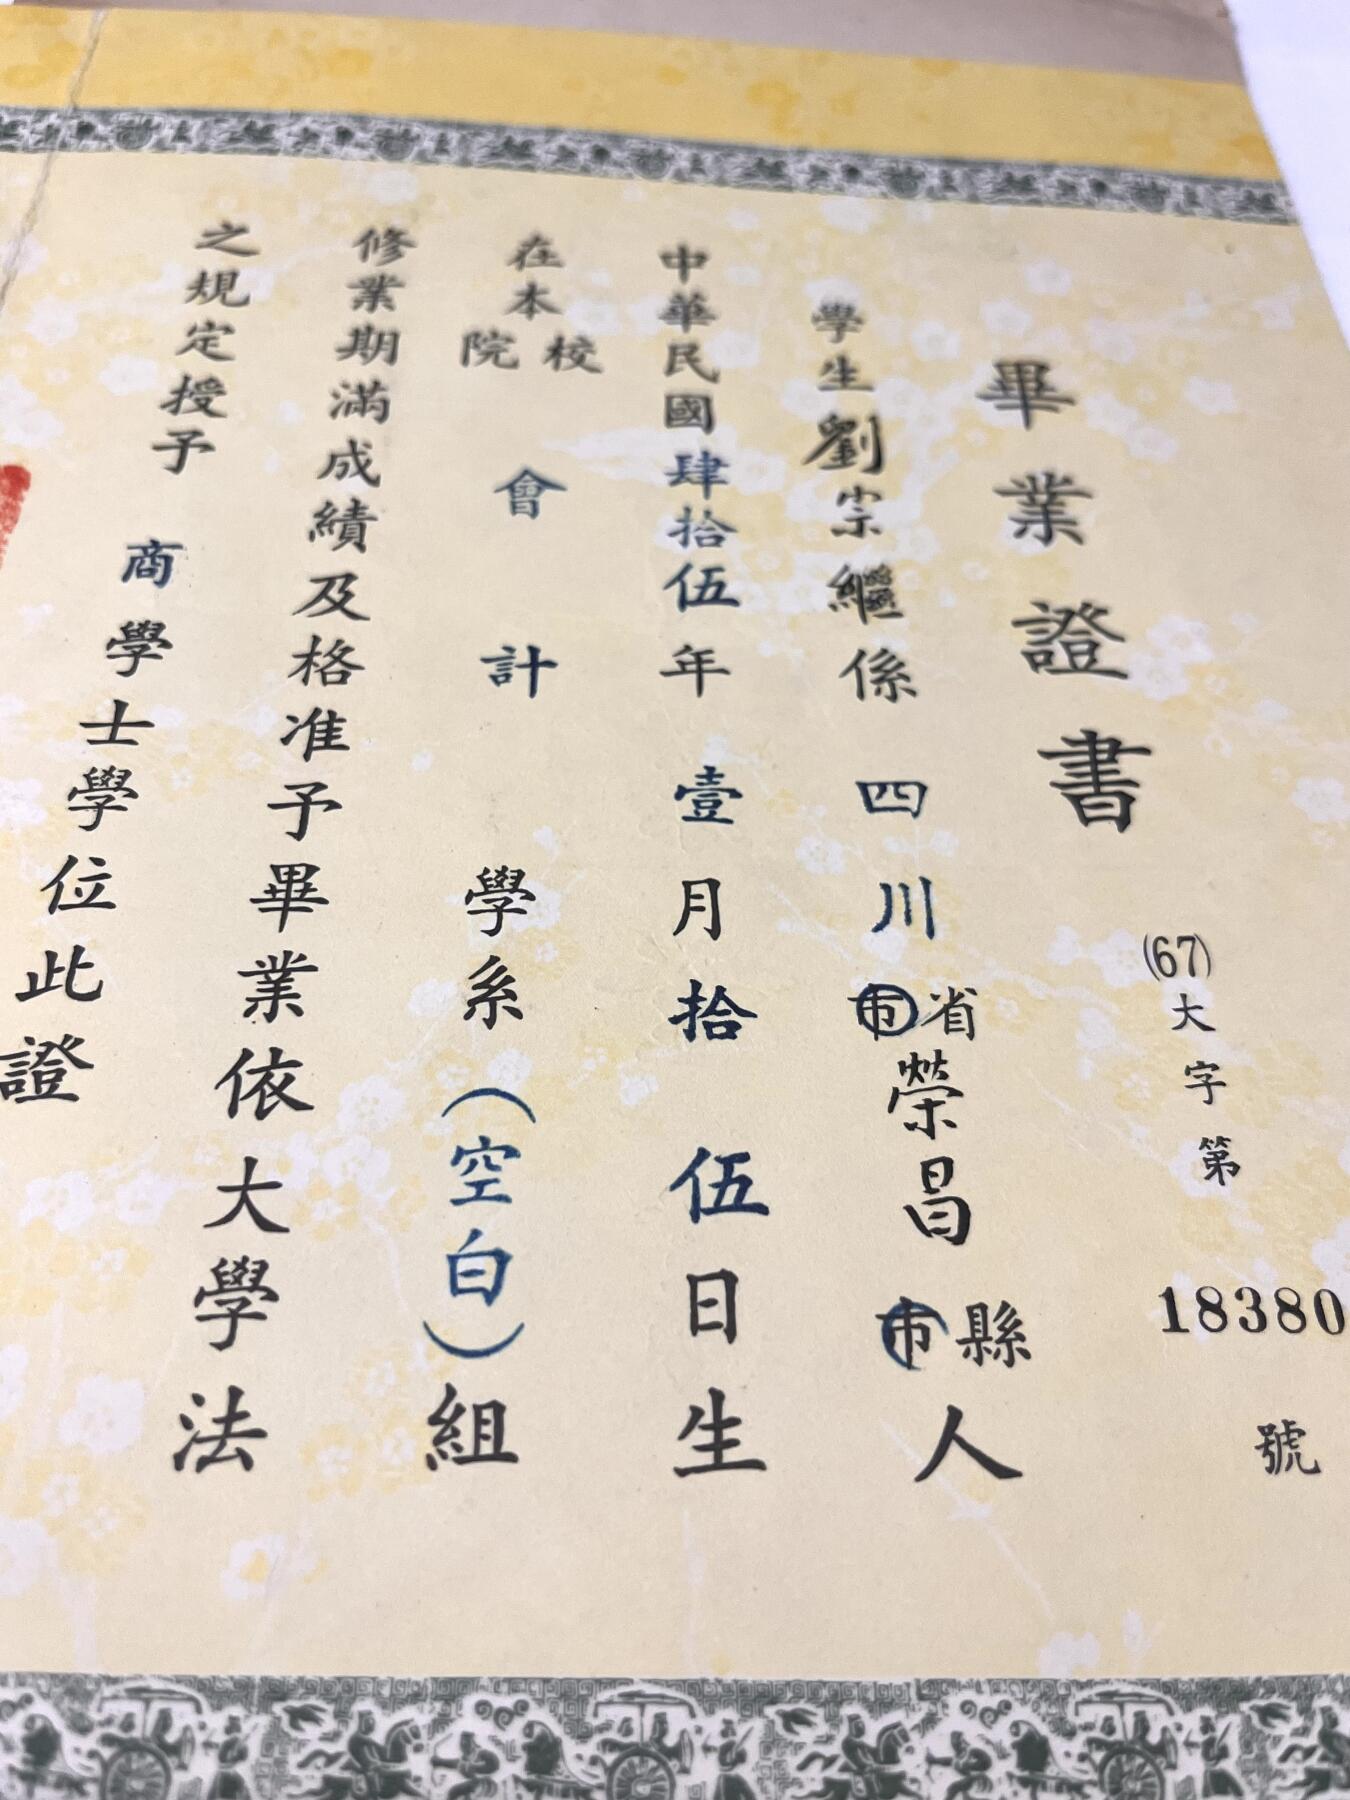 畢業證書
(67)大字第18380號
學生劉宗繼係四川省市榮昌縣市人
中華民國肆拾伍年壹月拾伍日生
在本校院會計學系(空白)組
修業期滿成績及格准予畢業依大學法
之規定授予商學士學位此證